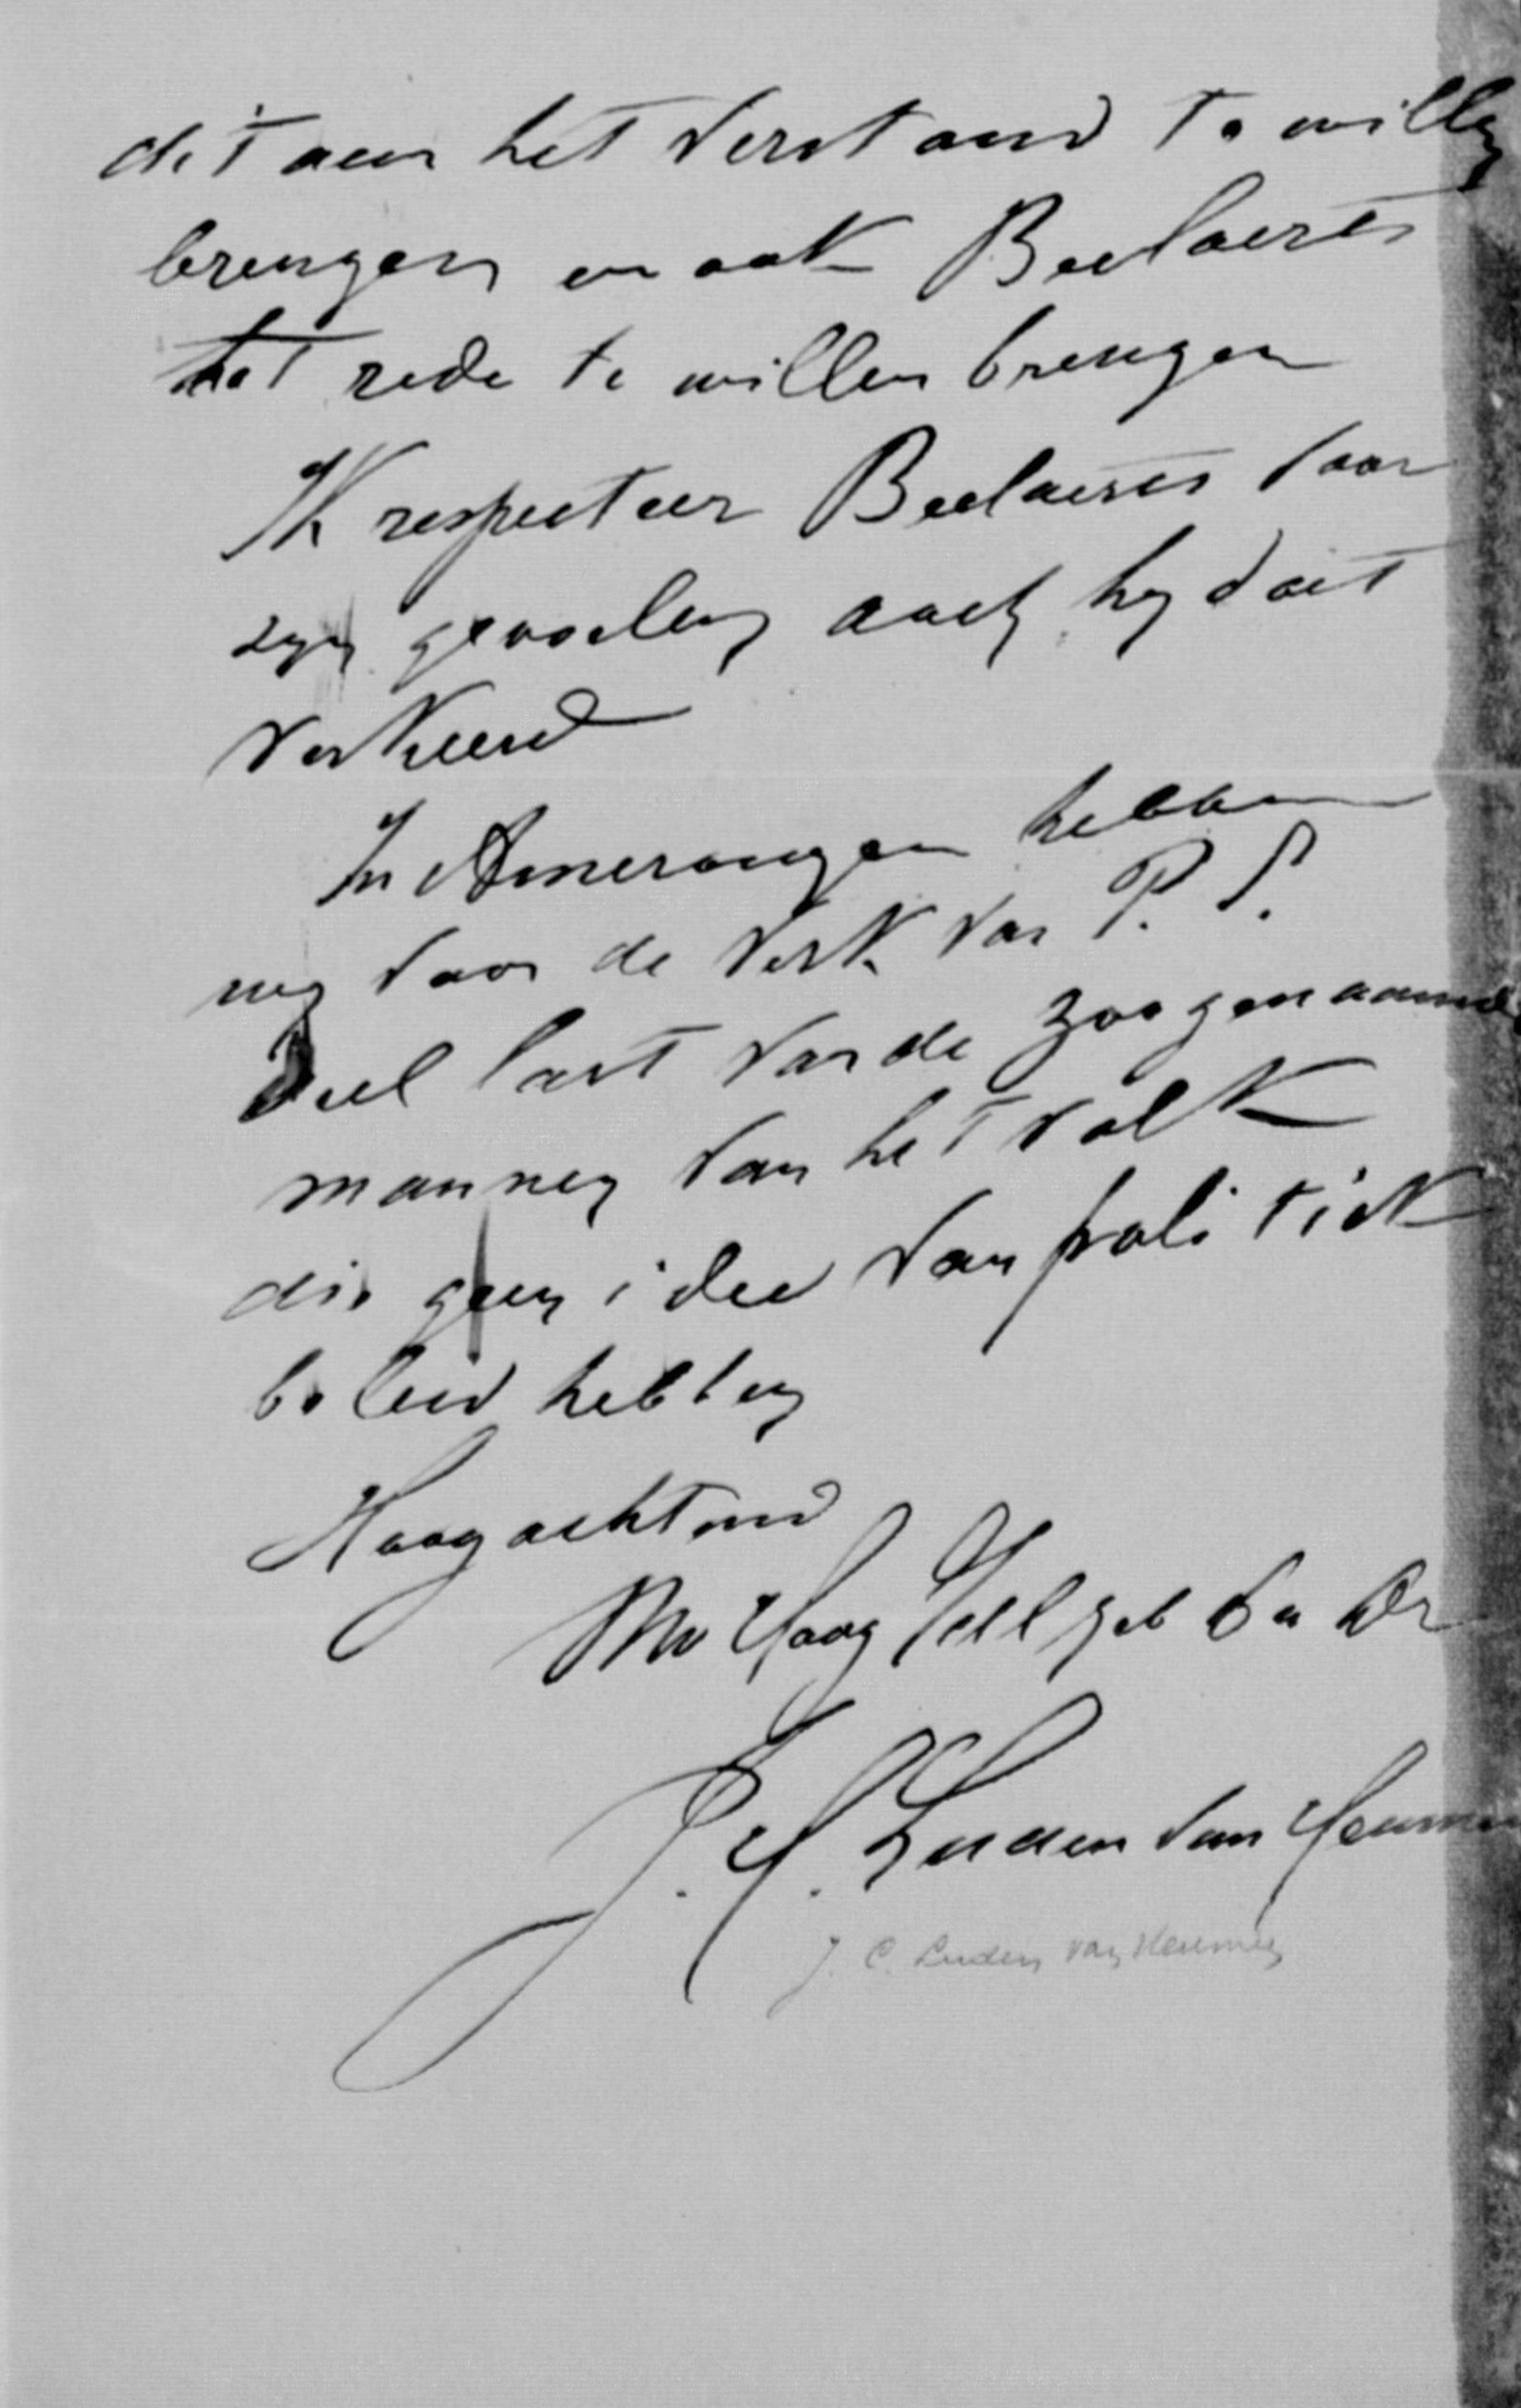 dit aan het verstand te willen
brengen en ook Beelaerts
tot rede te willen brengen
Ik respecteer Beelaerts voor
zyn gevoelen doch hy doet
verkeerd
In Amerongen hebben
wy voor de Verk. van P. S.
veel last van de zoogenaamde
mannen van het volk
die geen idee van politiek
beleid hebben
Hoogachtend
Uw HoogWelgeb Da Dr
J. C. Luden van Heumen
J. C. Luden van Heumen